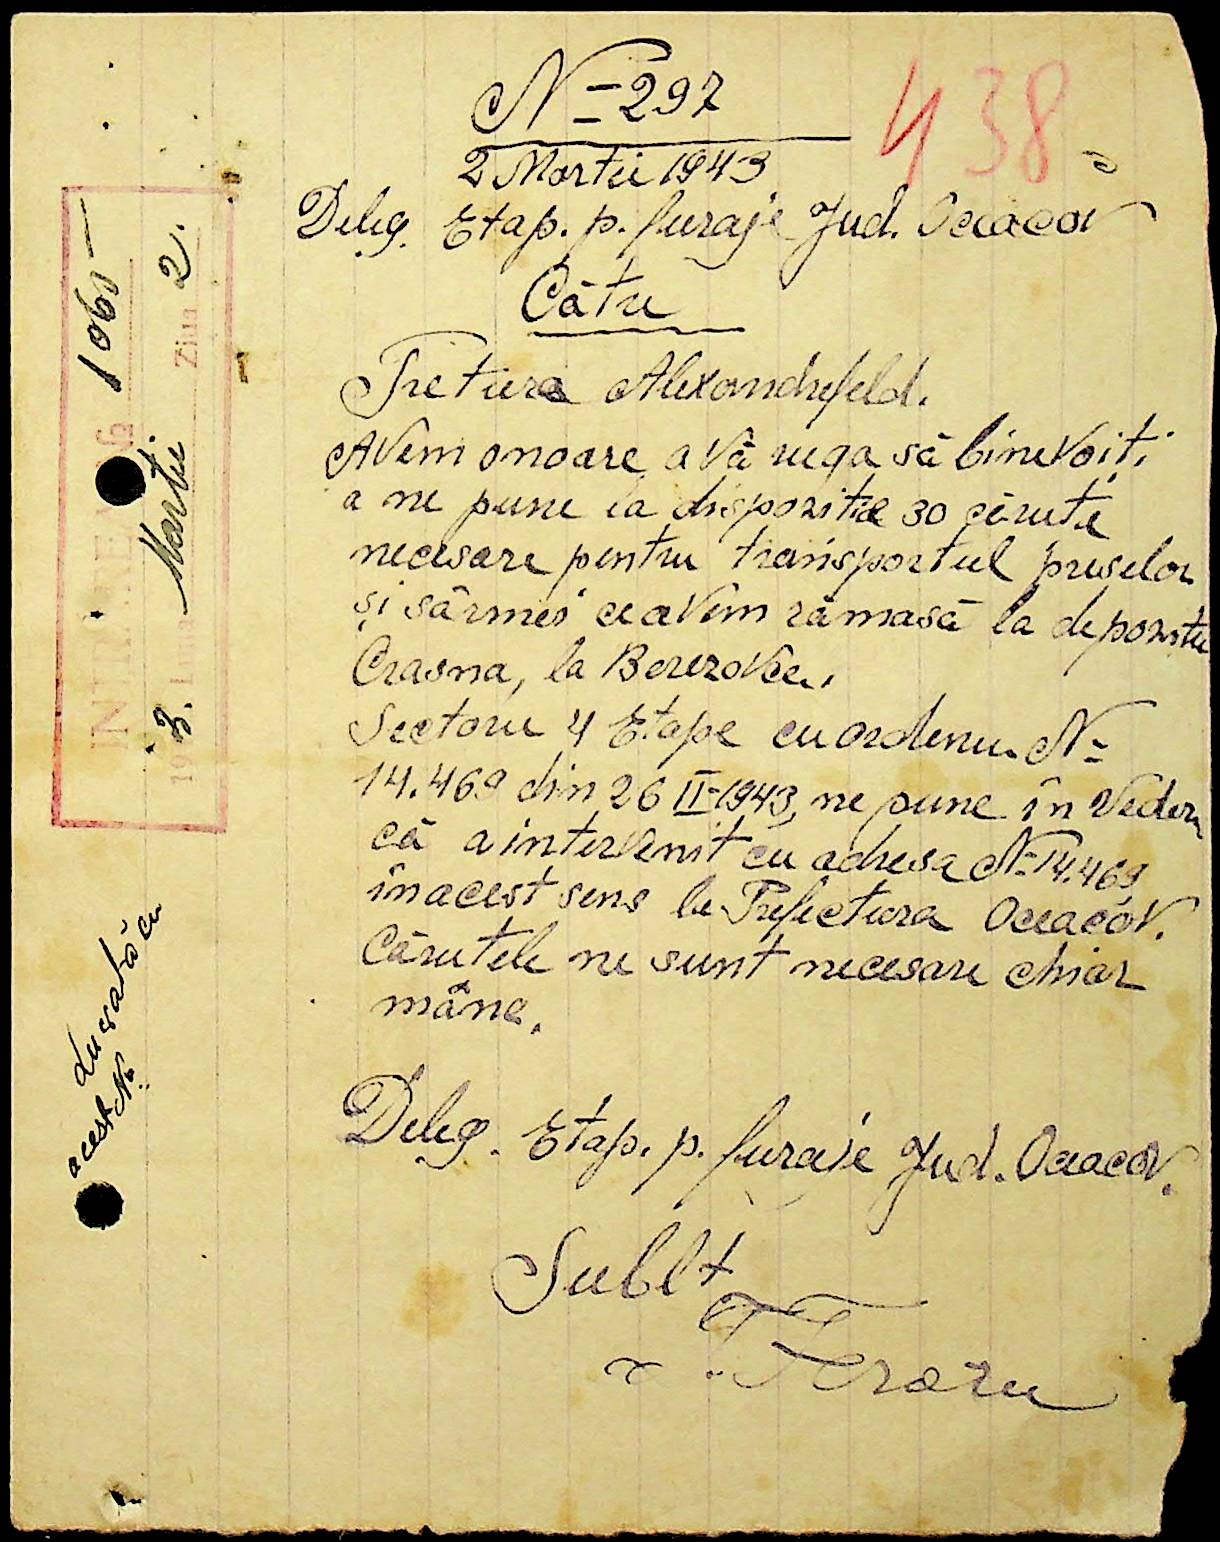 N= 297
438
2 Martie 1943
Deleg. Etap. p. furaje Jud. Oceacov
Către
Pretura Alexandrfeld.
Avem onoare a vă ruga să binevoiți
a ne pune la dispoziție 30 căruțe
necesare pentru transportul preselor
și sârmei ce avem rămasă la depozitu
Crasna, la Berezovca.
Sectoru 4 Etape cu ordinu N=
14.469 din 26 II-1943, ne pune în vedere
că a intervenit cu adresa N= 14.469
în acest sens la Prefectura Oceacov.
Căruțele ne sunt necesare chiar
mâne.
Deleg. Etap. p. furaje Jud. Oceacov.
Sublt
INTRARE No 1065
194 3. Luna Martie Ziua 2.
Lucrată cu
acest No